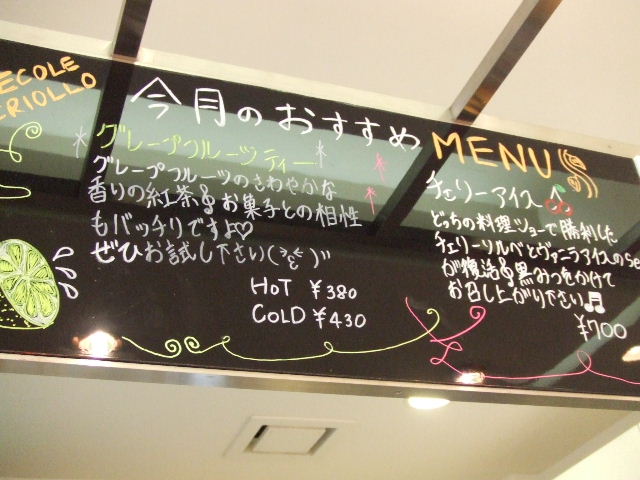 ECOLE
CRIOLLO
今月のおすすめMENU
グレープフルーツティー
グレープフルーツのさわやかな
香りの紅茶&お菓子との相性
もバッチリですよ♡
ぜひお試し下さい
HOT ¥380
COLD ¥430
チェリーアイス
どっちの料理ショーで勝利した
チェリーソルベとヴァニラアイスのSe
が復活&黒みつをかけて
お召し上がり下さい♬
¥700